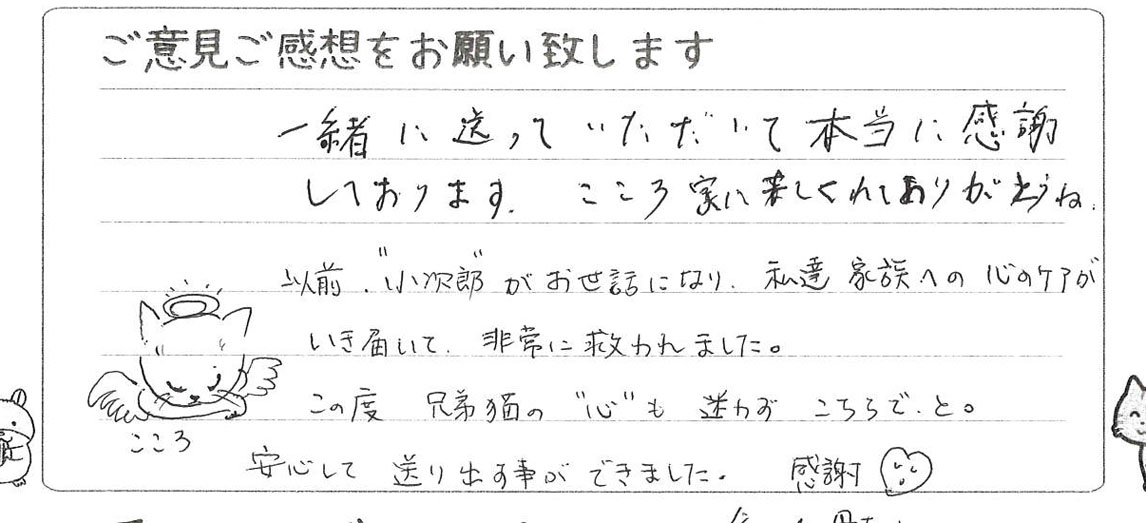 ご意見ご感想をお願い致します
一緒に送っていただいて本当に感謝
しております。 こころ 家に来てくれてありがとうね。
以前、"小次郎"がお世話になり、私達家族への心のケアが
いき届いて、非常に救われました。
この度 兄弟猫の"心"も 迷わず こちらで、と。
こころ
安心して 送り出す事ができました。 感謝